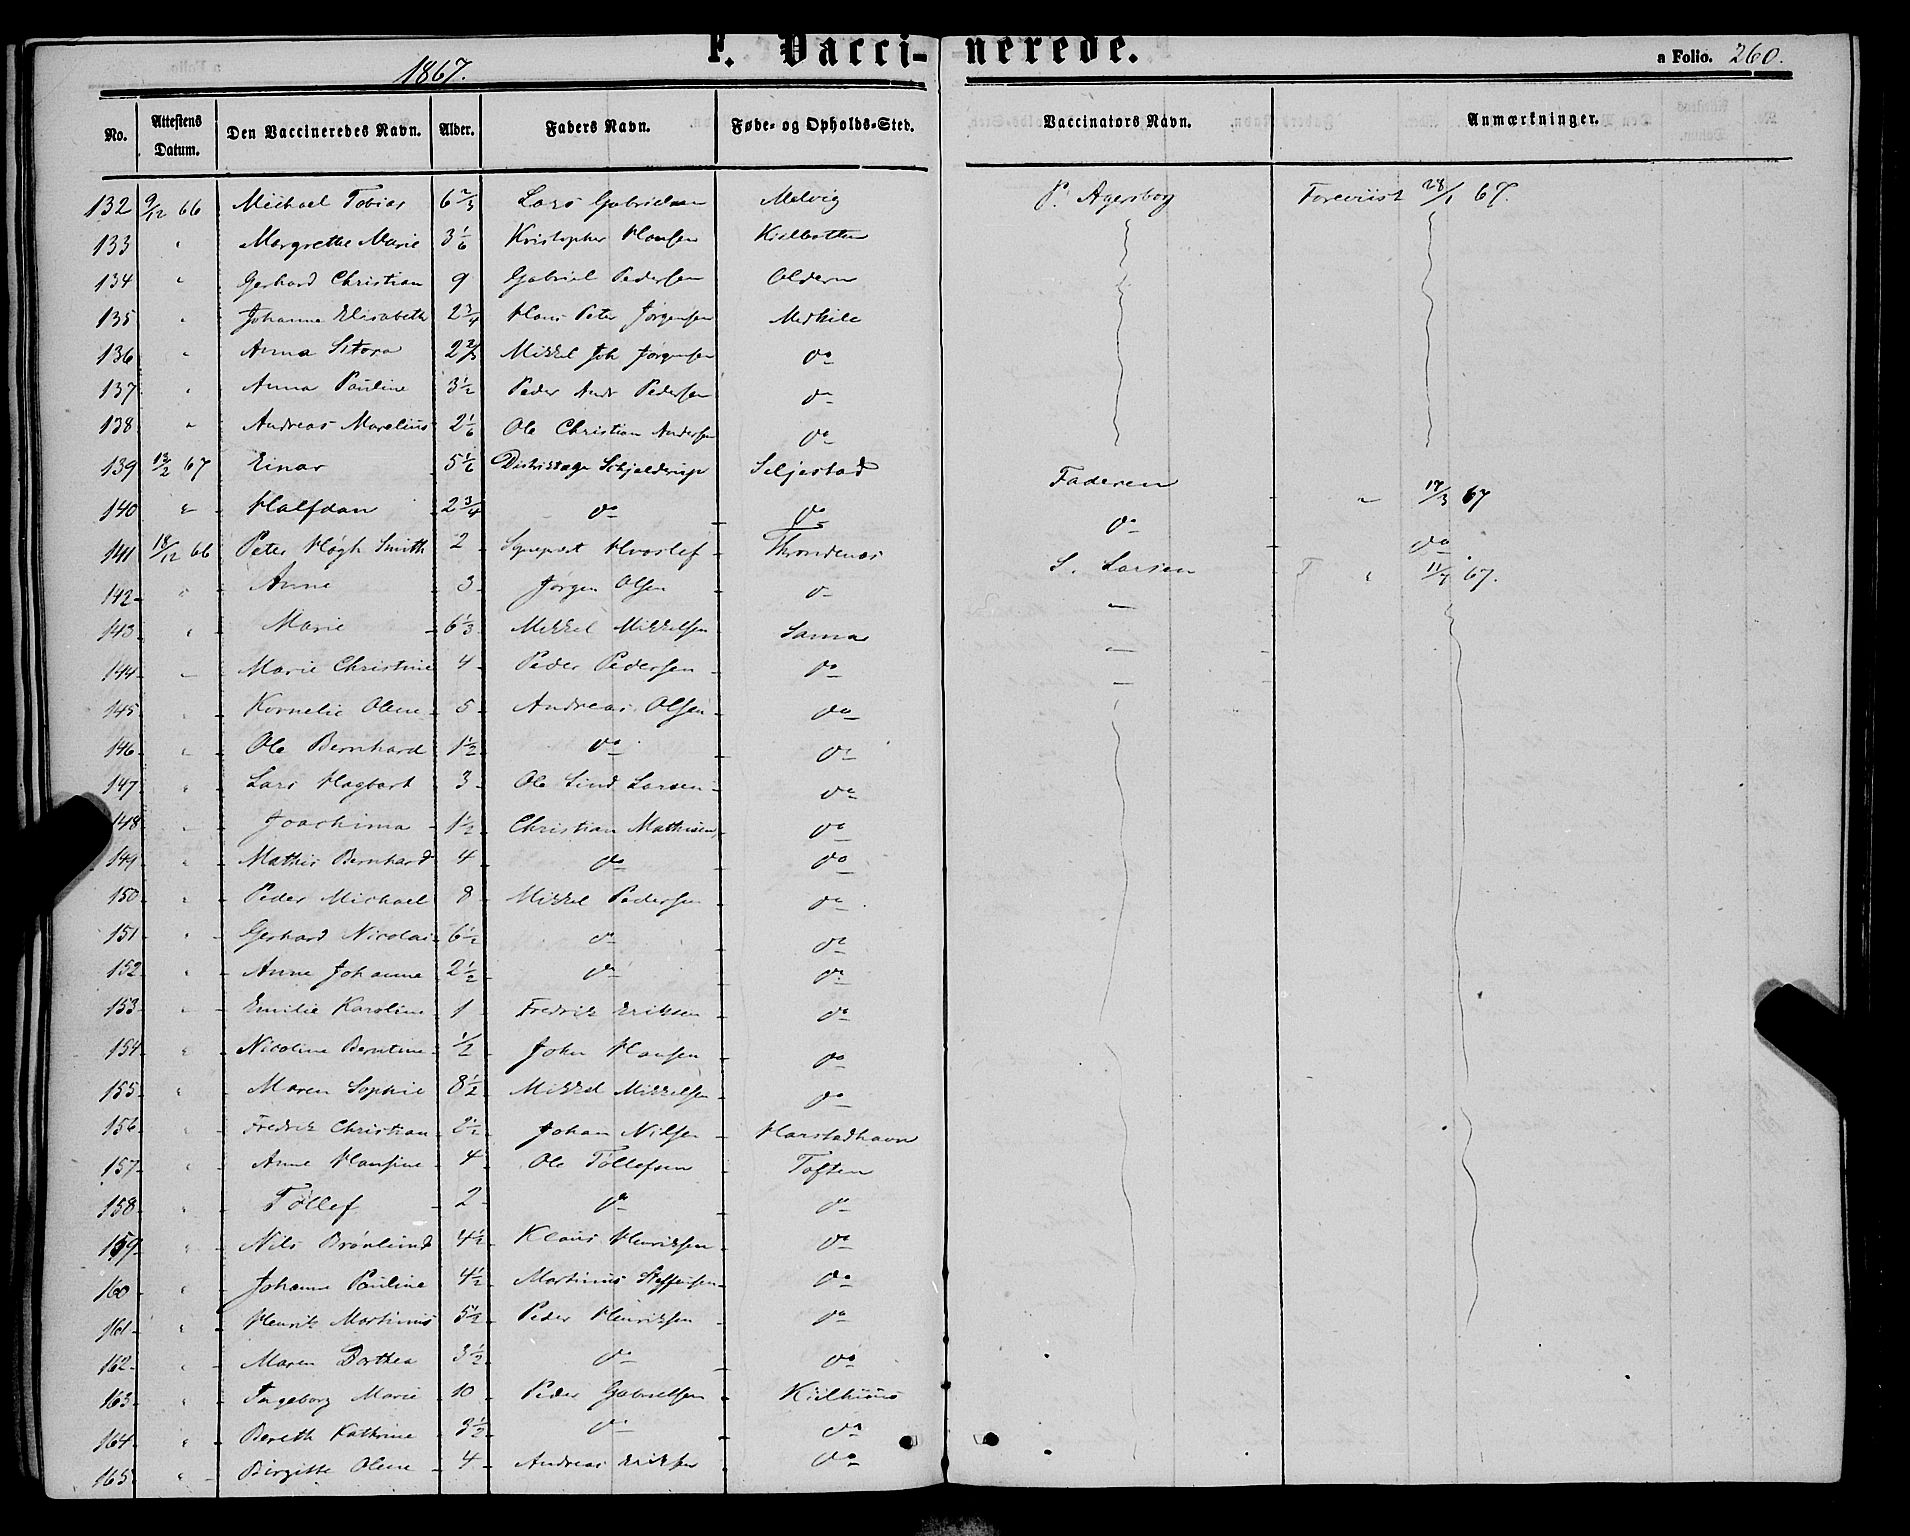 F. Vaccinerede.
1867.
a Folio. 260.
No. Attestens Datum. Den Vaccineredes Navn. Alder. Faders Navn. Føde- og Opholds-Sted. Vaccinatörs Navn. Anmærkninger.
132 9/12 66 Michael Tobias 6 2/3 Lars Gabrielsen Melvig P. Agersborg Foreviist 28/1 67.
133 " Margrethe Marie 3 1/6 Kristopher Hansen Kielbotten
134 " Gerhard Christian 9 Gabriel Pedersen Aldern
135 " Johanna Elisabeth 2 3/4 Hans Peter Jørgensen Medkile
136 " Anna 2 2/3 Mikkel Joh Jørgensen do
137 " Anna Pauline 3 1/2 Peder Andr Pedersen do
138 " Andreas Marelius 2 1/6 Ole Christian Andersen do
139 12/2 67 Einar 5 1/6 Schjelderup Seljestad Faderen " 17/3 67
140 " Halfdan 2 3/4 do do do do
141 18/12 66 Peter Høgh Smith 2 Hvoslef Throndenæs S. Larsen F " 11/4 67.
142 " Anne 3 Jørgen Olsen do "
143 " Marie 6 1/3 Mikkel Mikkelsen Sama "
144 " Marie Christine 4 Peder Pedersen do "
145 " Kornelie Olene 5 Andreas Olsen do
146 " Ole Bernhard 1 1/2 do do
147 " Lars Hagbart 3 Ole Lind Larsen do
148 " Joachima 1 1/2 Christian Mathisen do
149 " Mathis Bernhard 4 do do
150 " Peder Michael 8 Mikkel Pedersen do
151 " Gerhard Nicolai 6 1/2 do do
152 " Anne Johanne 2 1/2 do do
153 " Emilie Karoline 1 Fredrik Eriksen do
154 " Nicoline Berntine 1/2 John Hansen do
155 " Maren Sophie 8 1/2 Mikkel Mikkelsen do
156 " Fredrik Christian 2 1/2 Johan Nilsen Harstadhavn
157 " Anne Hansine 4 Ole Tollefsen Toften
158 " Tøllef 2 do do
159 " Nils Brønlund 4 1/2 Klaus Henriksen do
160 " Johanne Pauline 4 1/2 Martinus Steffensen do
161 " Henrik Martinus 5 1/2 Peder Henriksen do
162 " Maren Dorthea 3 1/2 do do
163 " Ingeborg Marie 10 Peder Gabrielsen Kiilhuus
164 " Bereth Kathrine 3 1/2 do do
165 " Birgitte Olene 4 Andreas Eriksen do